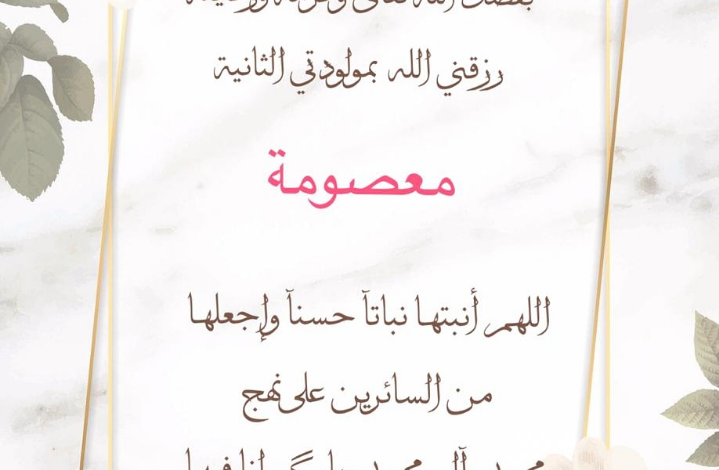 رزقني الله بمولودتي الثانية
معصومة
اللهم أنبتها نباتاً حسناً وإجعلها
من السائرين على نهج
محمد وآل محمد